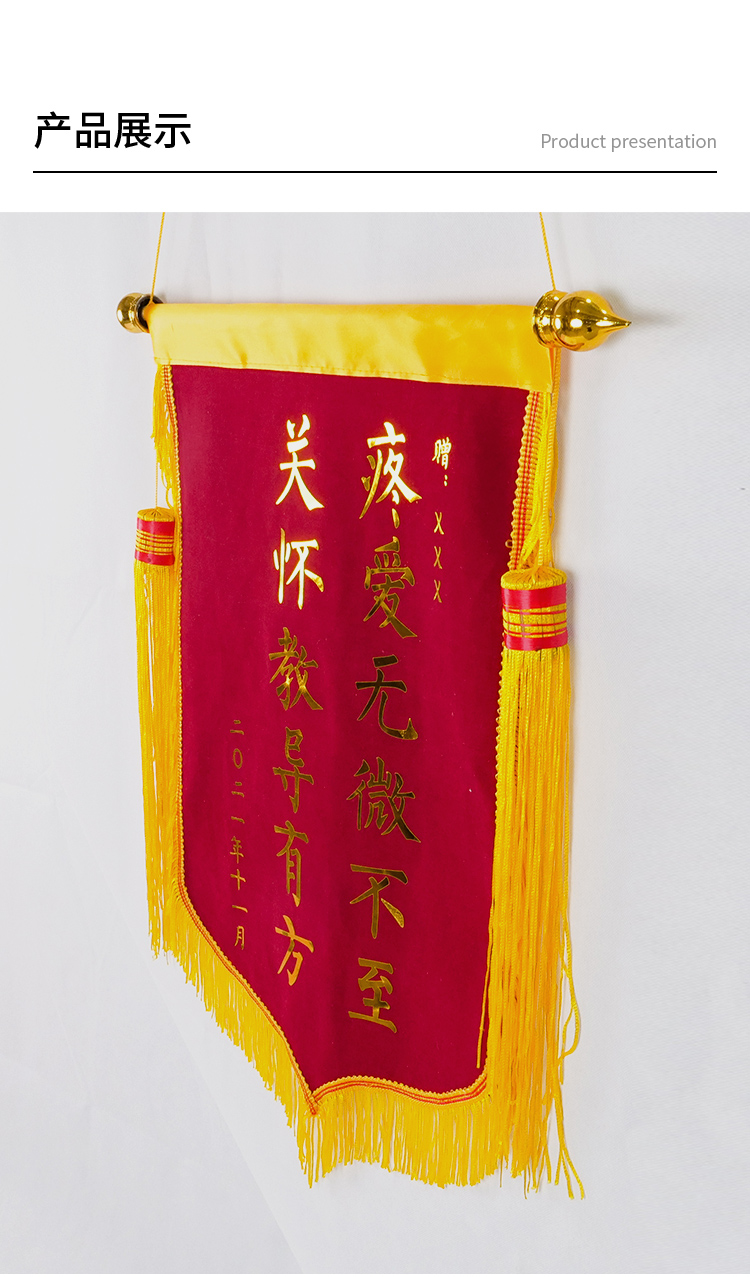 产品展示
Product presentation
赠：XXX
疼爱无微不至
关怀教导有方
二〇二一年十一月